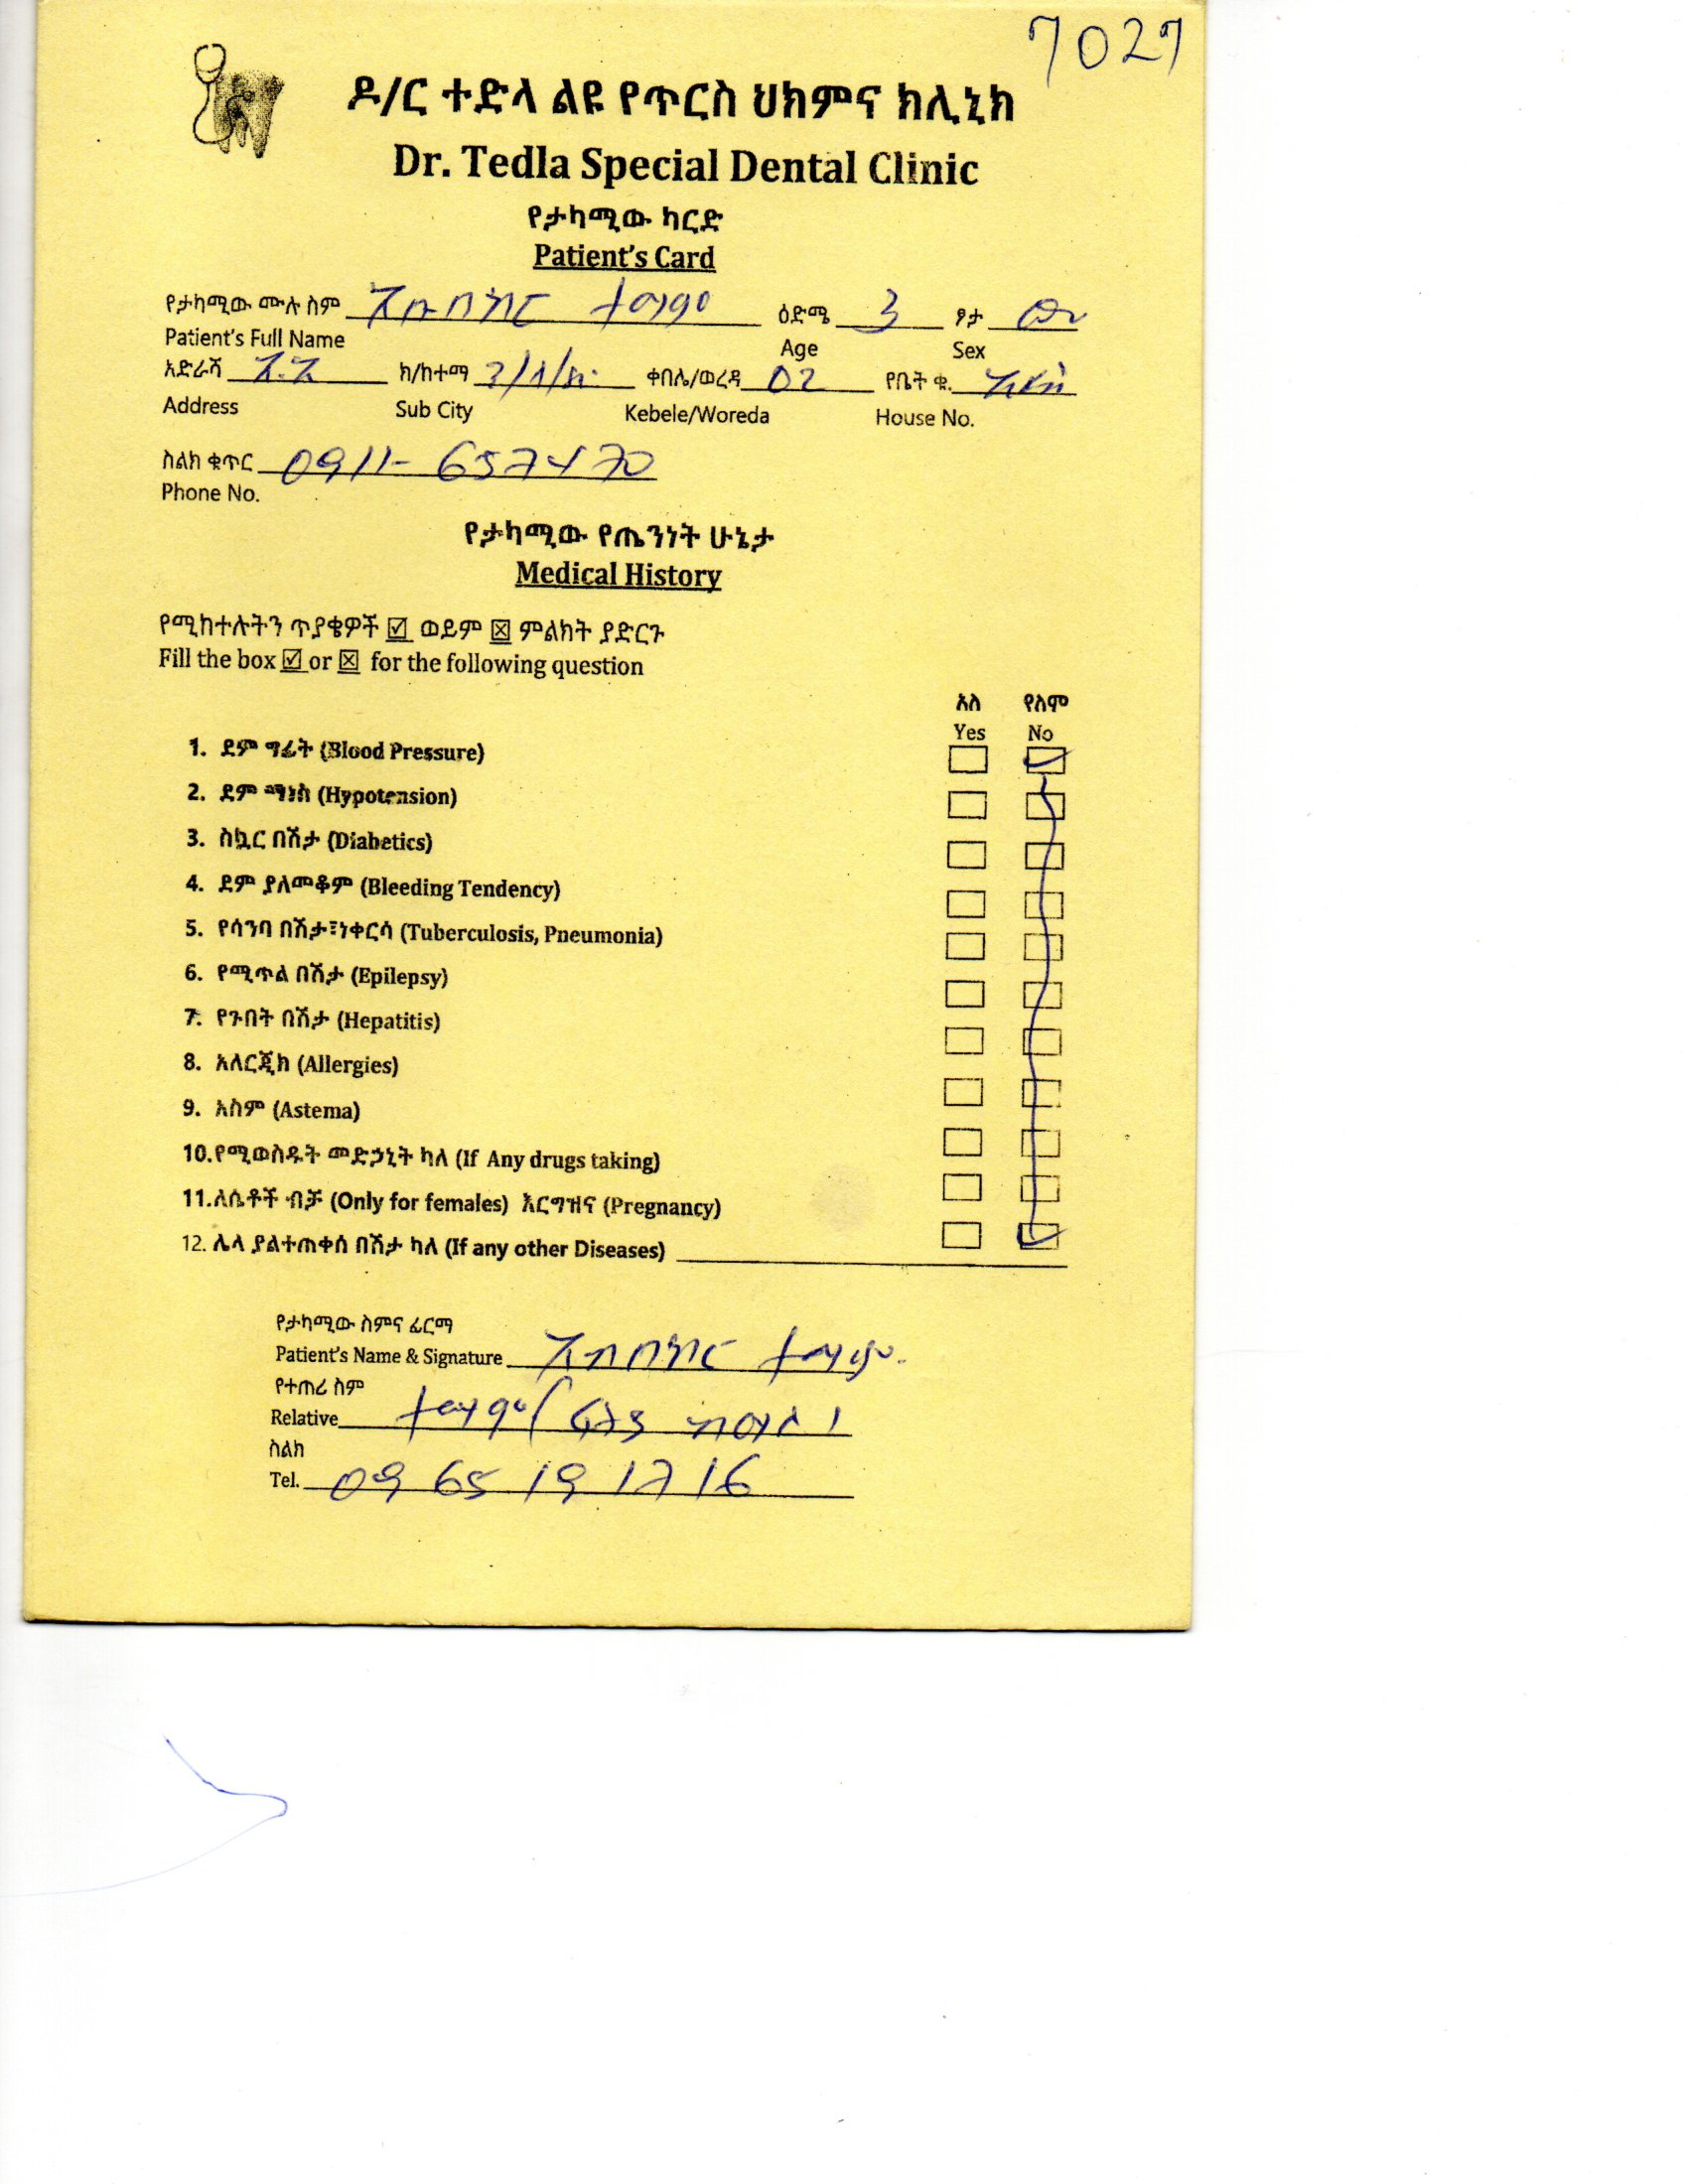 7027
ዶ/ር ተድላ ልዩ የጥርስ ህክምና ክሊኒክ
Dr. Tedla Special Dental Clinic
የታካሚው ካርድ
Patient's Card
የታካሚው ሙሉ ስም አቡበከር ተማም ዕድሜ 3 ፆታ ወ
Patient's Full Name Age Sex
አድራሻ አ.አ ክ/ከተማ ቀበሌ/ወረዳ 02 የቤት ቁ. አዲስ
Address Sub City Kebele/Woreda House No.
ስልክ ቁጥር 0911-657470
Phone No.
የታካሚው የጤንነት ሁኔታ
Medical History
የሚከተሉትን ጥያቄዎች ☑ ወይም ☒ ምልክት ያድርጉ
Fill the box ☑ or ☒ for the following question
አለ የለም
Yes No
1. ደም ግፊት (Blood Pressure)
2. ደም ማነስ (Hypotension)
3. ስኳር በሽታ (Diabetics)
4. ደም ያለመቆም (Bleeding Tendency)
5. የሳንባ በሽታ፣ነቀርሳ (Tuberculosis, Pneumonia)
6. የሚጥል በሽታ (Epilepsy)
7. የጉበት በሽታ (Hepatitis)
8. አለርጂክ (Allergies)
9. አስም (Astema)
10.የሚወስዱት መድኃኒት ካለ (If Any drugs taking)
11.ለሴቶች ብቻ (Only for females) እርግዝና (Pregnancy)
12. ሌላ ያልተጠቀሰ በሽታ ካለ (If any other Diseases)
የታካሚው ስምና ፊርማ
Patient's Name & Signature አቡበከር ተማም
የተጠሪ ስም
Relative ተማም
ስልክ
Tel. 09 65 19 17 16